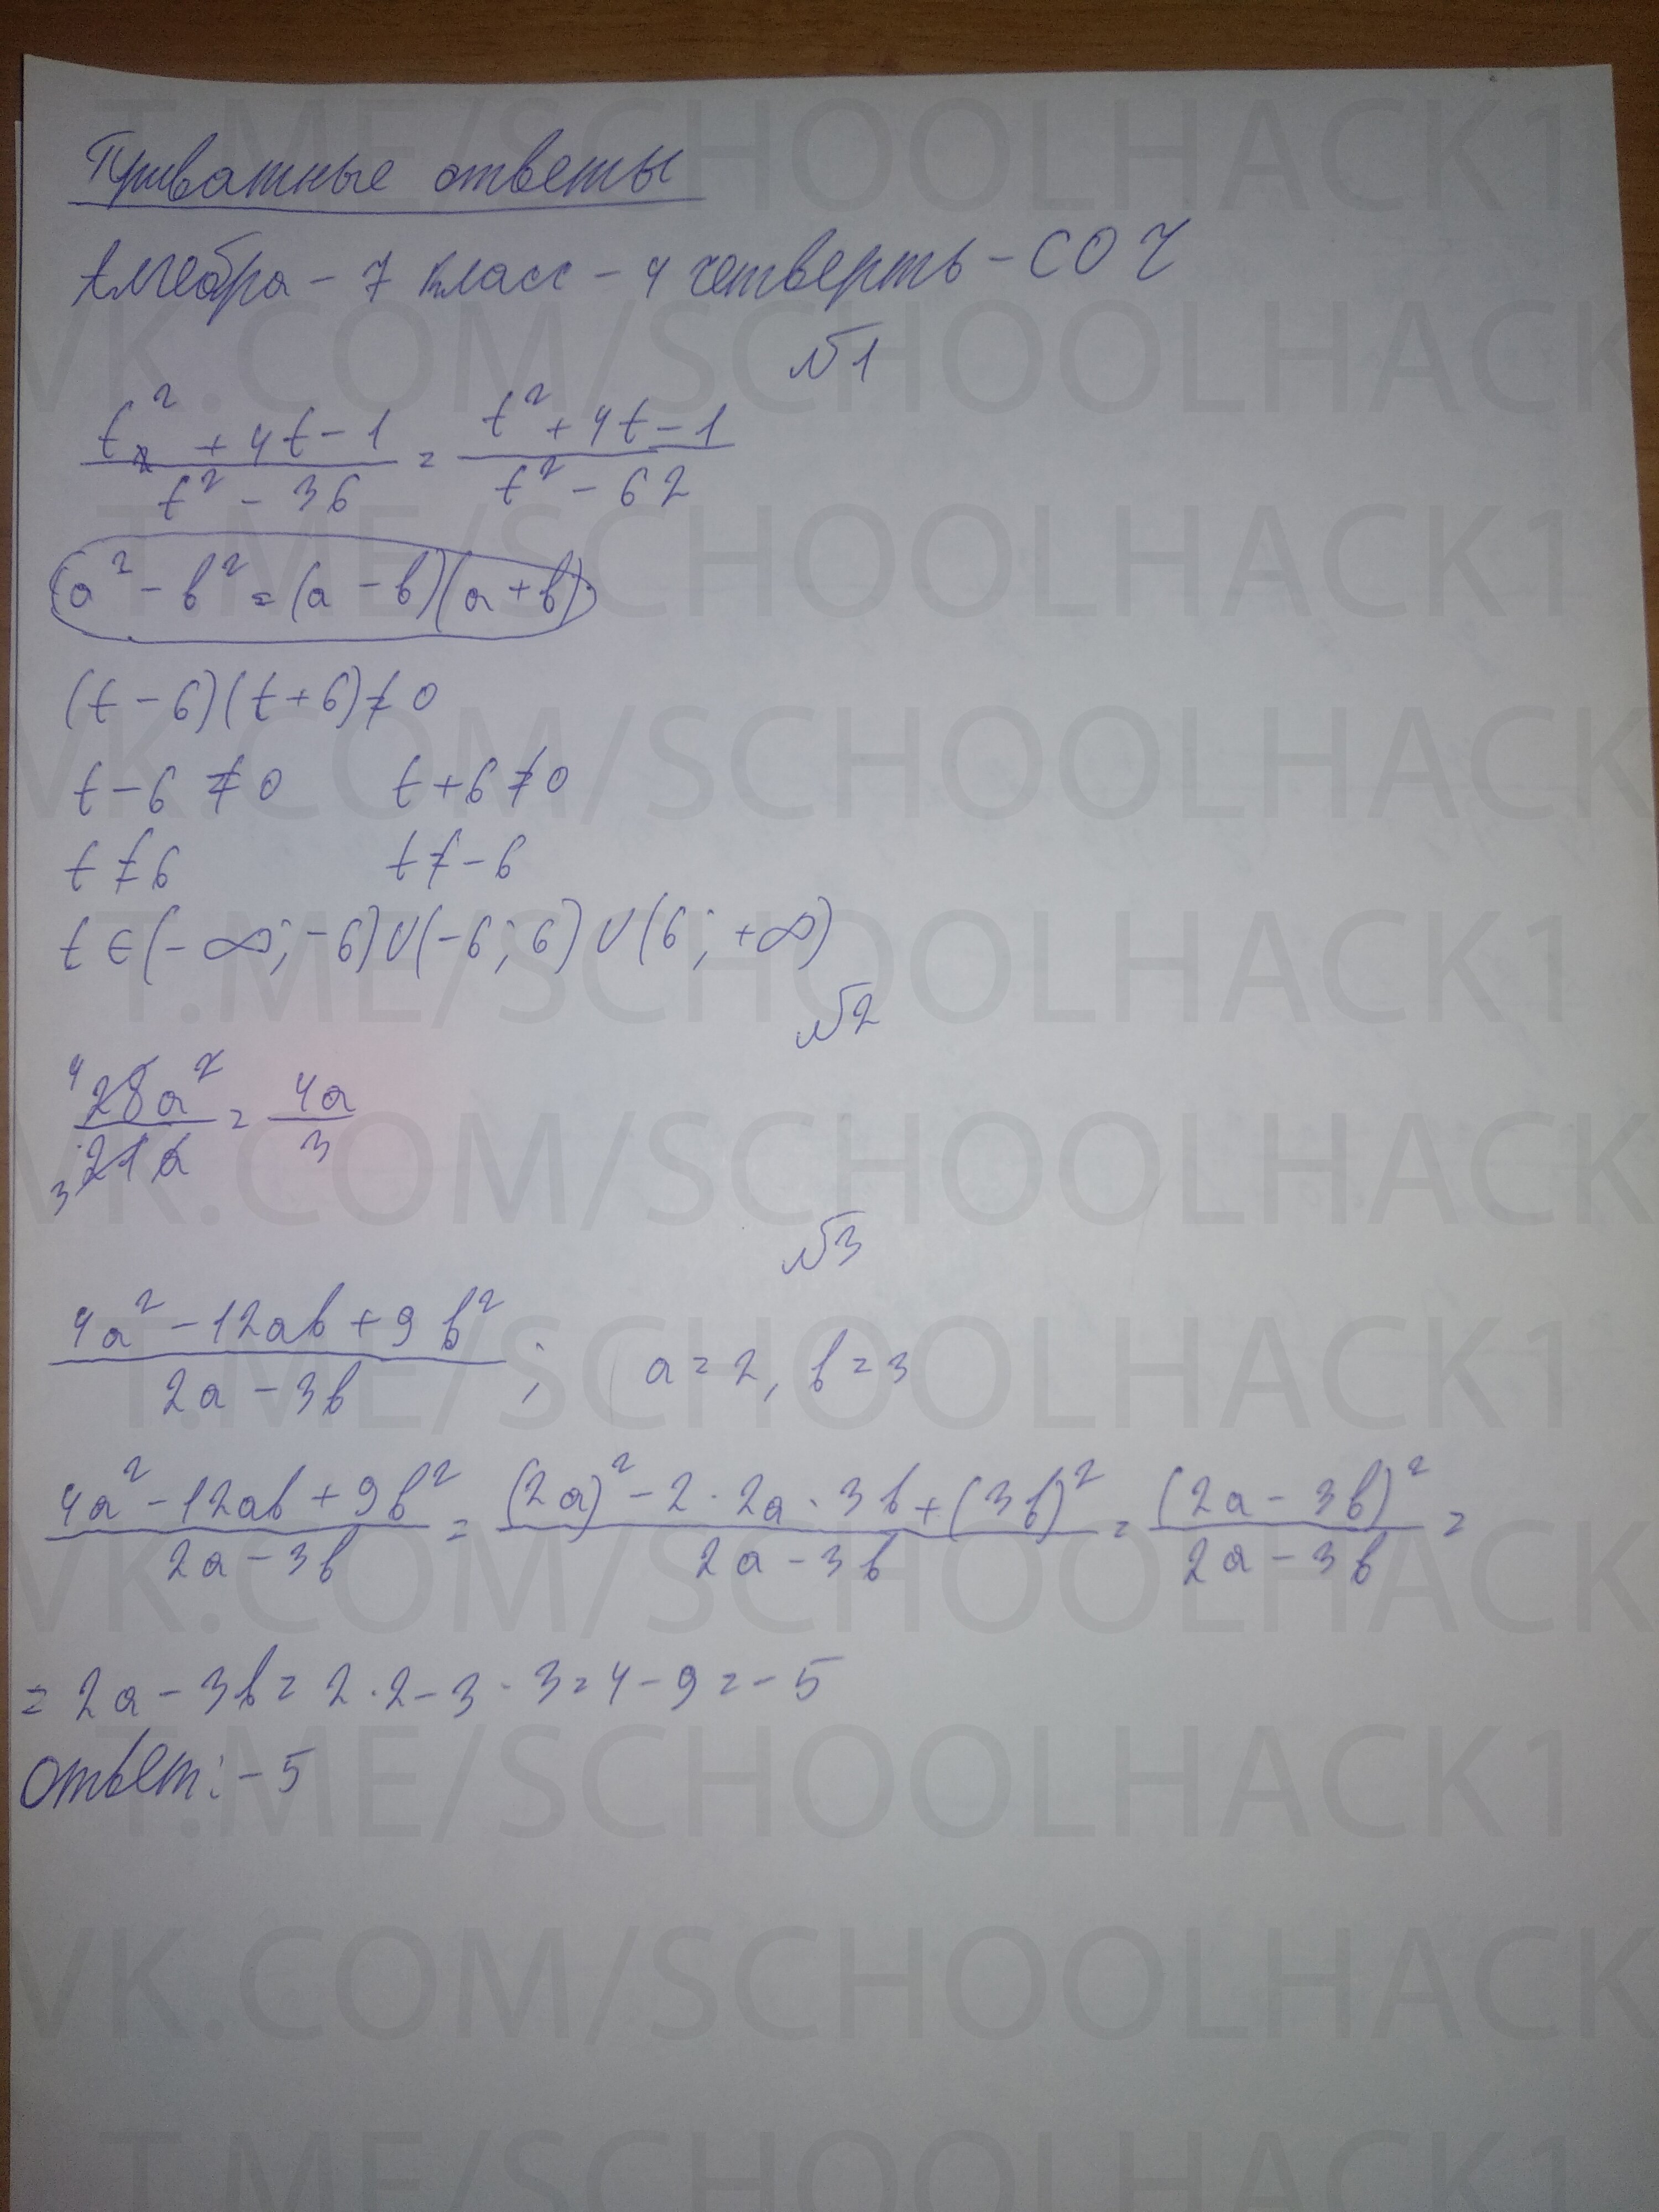 Приватные ответы
Алгебра - 7 класс - 4 четверть - СОЧ
№1
t² + 4t - 1 / t² - 36 = t² + 4t - 1 / t² - 62
a² - b² = (a - b)(a + b)
(t - 6)(t + 6) ≠ 0
t - 6 ≠ 0 t + 6 ≠ 0
t ≠ 6 t ≠ - 6
t ∈ (- ∞; - 6) ∪ (- 6; 6) ∪ (6; + ∞)
№2
28a² / 21a = 4a / 3
№3
4a² - 12ab + 9b² / 2a - 3b ; a = 2, b = 3
4a² - 12ab + 9b² / 2a - 3b = (2a)² - 2 · 2a · 3b + (3b)² / 2a - 3b = (2a - 3b)² / 2a - 3b =
= 2a - 3b = 2 · 2 - 3 · 3 = 4 - 9 = - 5
Ответ: - 5
T.ME/SCHOOLHACK1
VK.COM/SCHOOLHACK
T.ME/SCHOOLHACK1
VK.COM/SCHOOLHACK
T.ME/SCHOOLHACK1
VK.COM/SCHOOLHACK
T.ME/SCHOOLHACK1
VK.COM/SCHOOLHACK
T.ME/SCHOOLHACK1
VK.COM/SCHOOLHACK
T.ME/SCHOOLHACK1